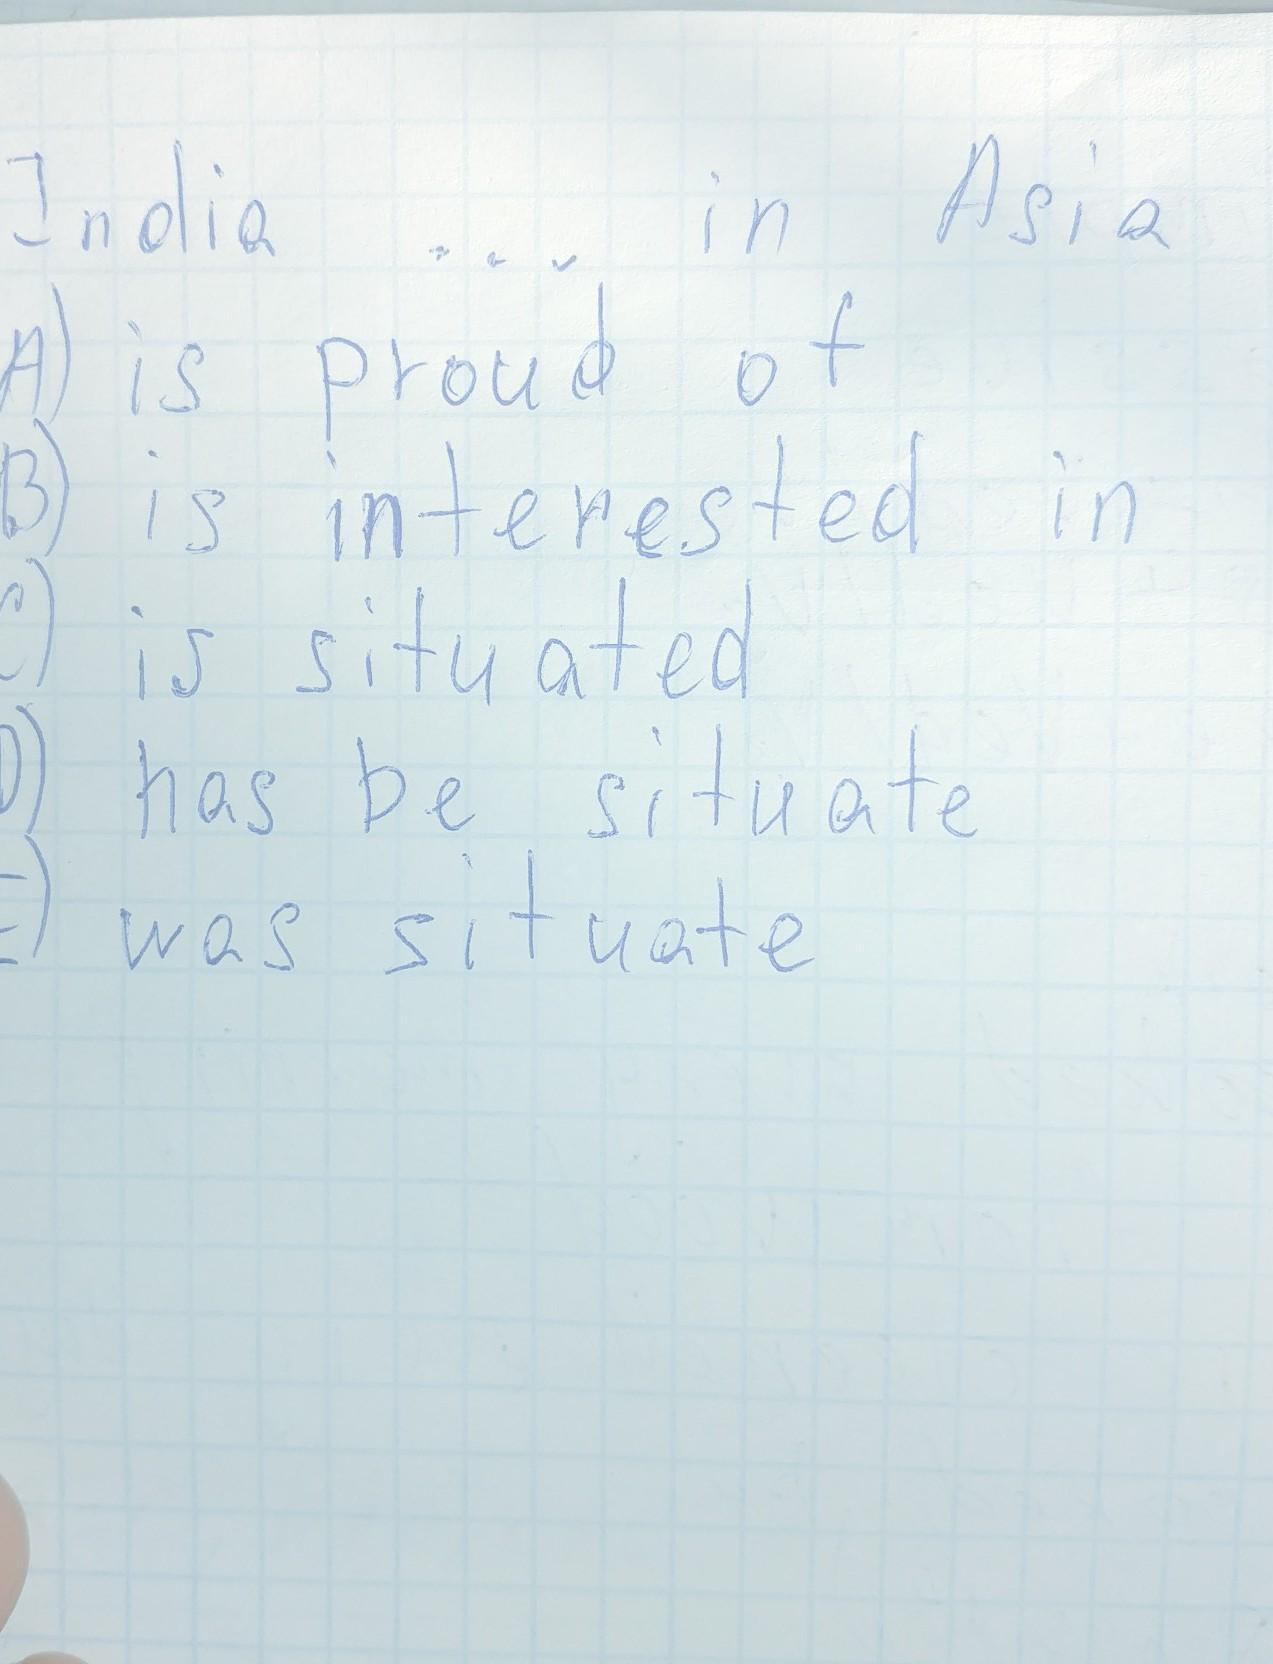 India ... in Asia
A) is proud of
B) is interested in
C) is situated
D) has be situate
E) was situate